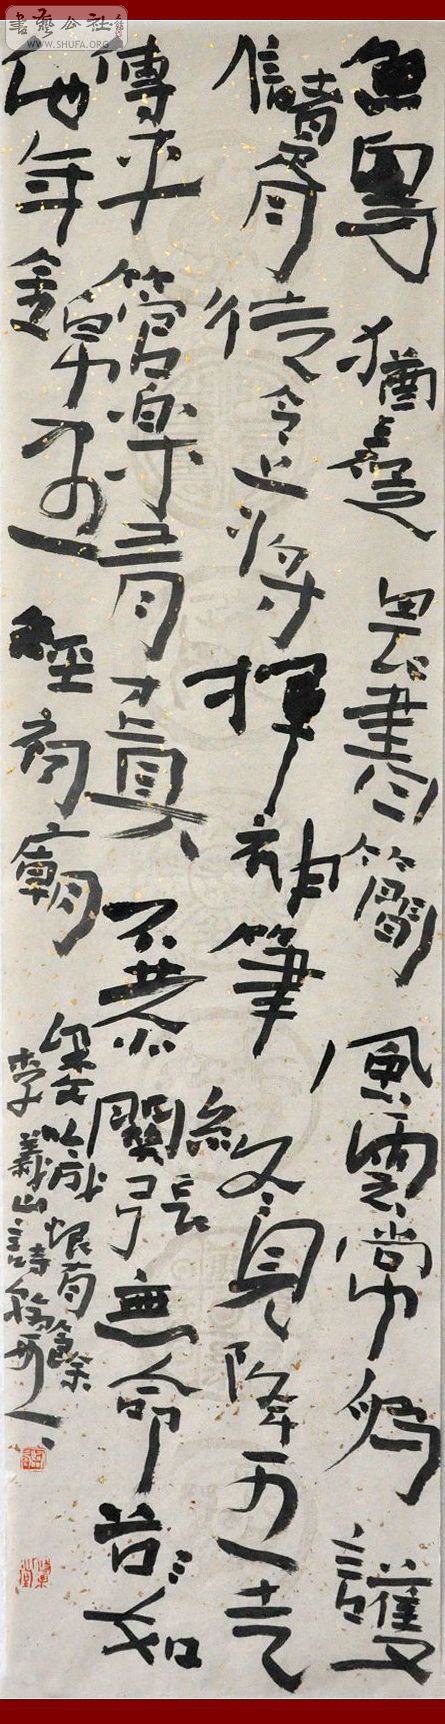 書藝公社
WWW.SHUFA.ORG
魚鳥猶疑畏書簡風雲常為護
儲胥徒令上將揮神筆終見降王走
傳車管樂有才真不忝關張無命如
他年錦里經祠廟
梁父吟成恨有餘
李義山詩